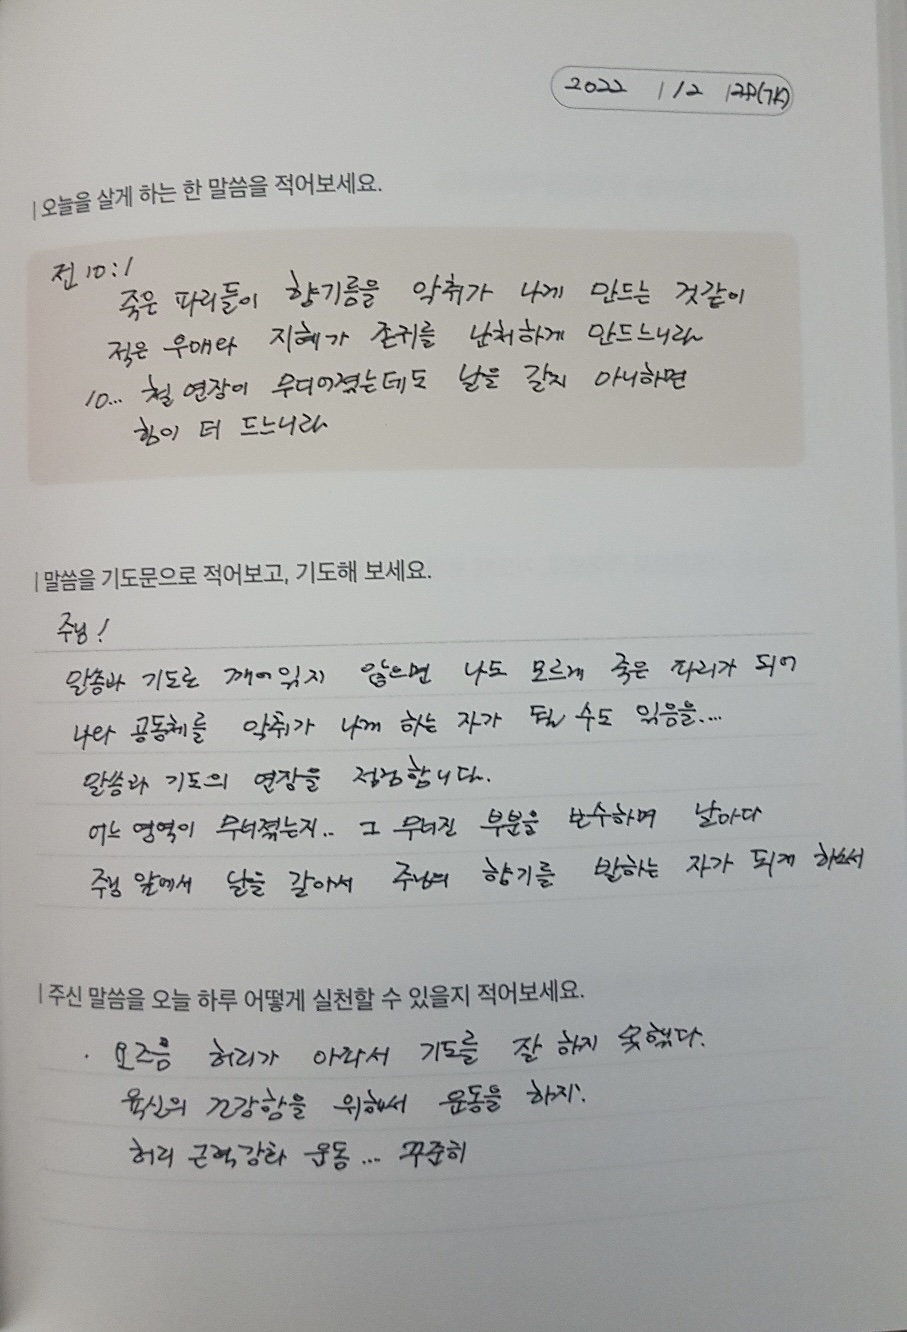 2022 1/2
오늘을 살게 하는 한 말씀을 적어보세요.
전 10:1
죽은 파리들이 향기름을 악취가 나게 만드는 것같이
적은 우매라 지혜가 존귀를 난처하게 만드느니라
10... 철 연장이 무디어졌는데도 날을 갈지 아니하면
힘이 더 드느니라
말씀을 기도문으로 적어보고, 기도해 보세요.
주님!
말씀과 기도로 깨어있지 않으면 나도 모르게 죽은 파리가 되어
나와 공동체를 악취가 나게 하는 자가 될 수도 있음을...
말씀과 기도의 연장을 점검합니다.
어느 영역이 무너졌는지.. 그 무너진 부분을 보수하며 날마다
주님 앞에서 날을 갈아서 주님의 향기를 발하는 자가 되게 하소서
주신 말씀을 오늘 하루 어떻게 실천할 수 있을지 적어보세요.
· 요즈음 허리가 아파서 기도를 잘 하지 못했다.
육신의 건강함을 위해서 운동을 하자!
허리 근력강화 운동... 꾸준히